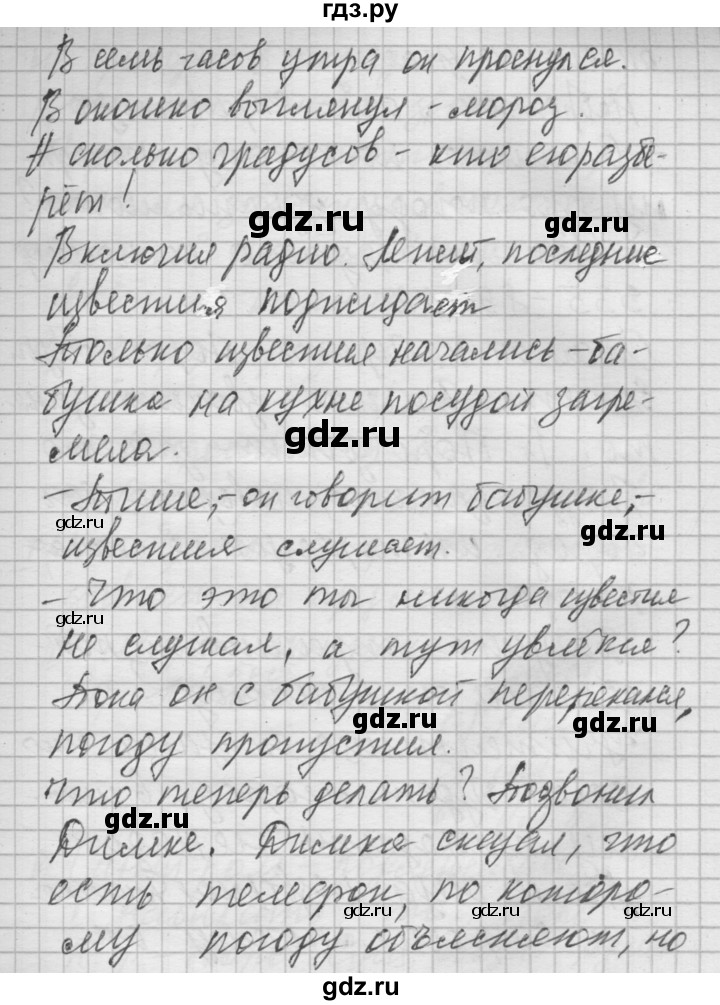 гдз.ру
В семь часов утра он проснулся.
В окошко выглянул – мороз.
А сколько градусов – кто его разбе-
рёт!
gdz.ru
gdz.ru
Включил радио. Лежит, последние
известия поджидает
Только известия начались – ба-
бушка на кухне посудой загре-
gdz.ru
мела.
– Тише, – он говорит бабушке, –
gdz.ru
gdz.ru
известия слушает.
– Что это ты никогда известия
gdz.ru
не слушал, а тут увлёкся?
Пока он с бабушкой перерекался,
gdz.ru
gdz.ru
погоду пропустил.
Что теперь делать? Позвонил
gdz.ru
Димке. Димка сказал, что
есть телефон, по которо-
gdz.ru
gdz.ru
gdz.ru
му погоду объясняют, но
gdz.ru